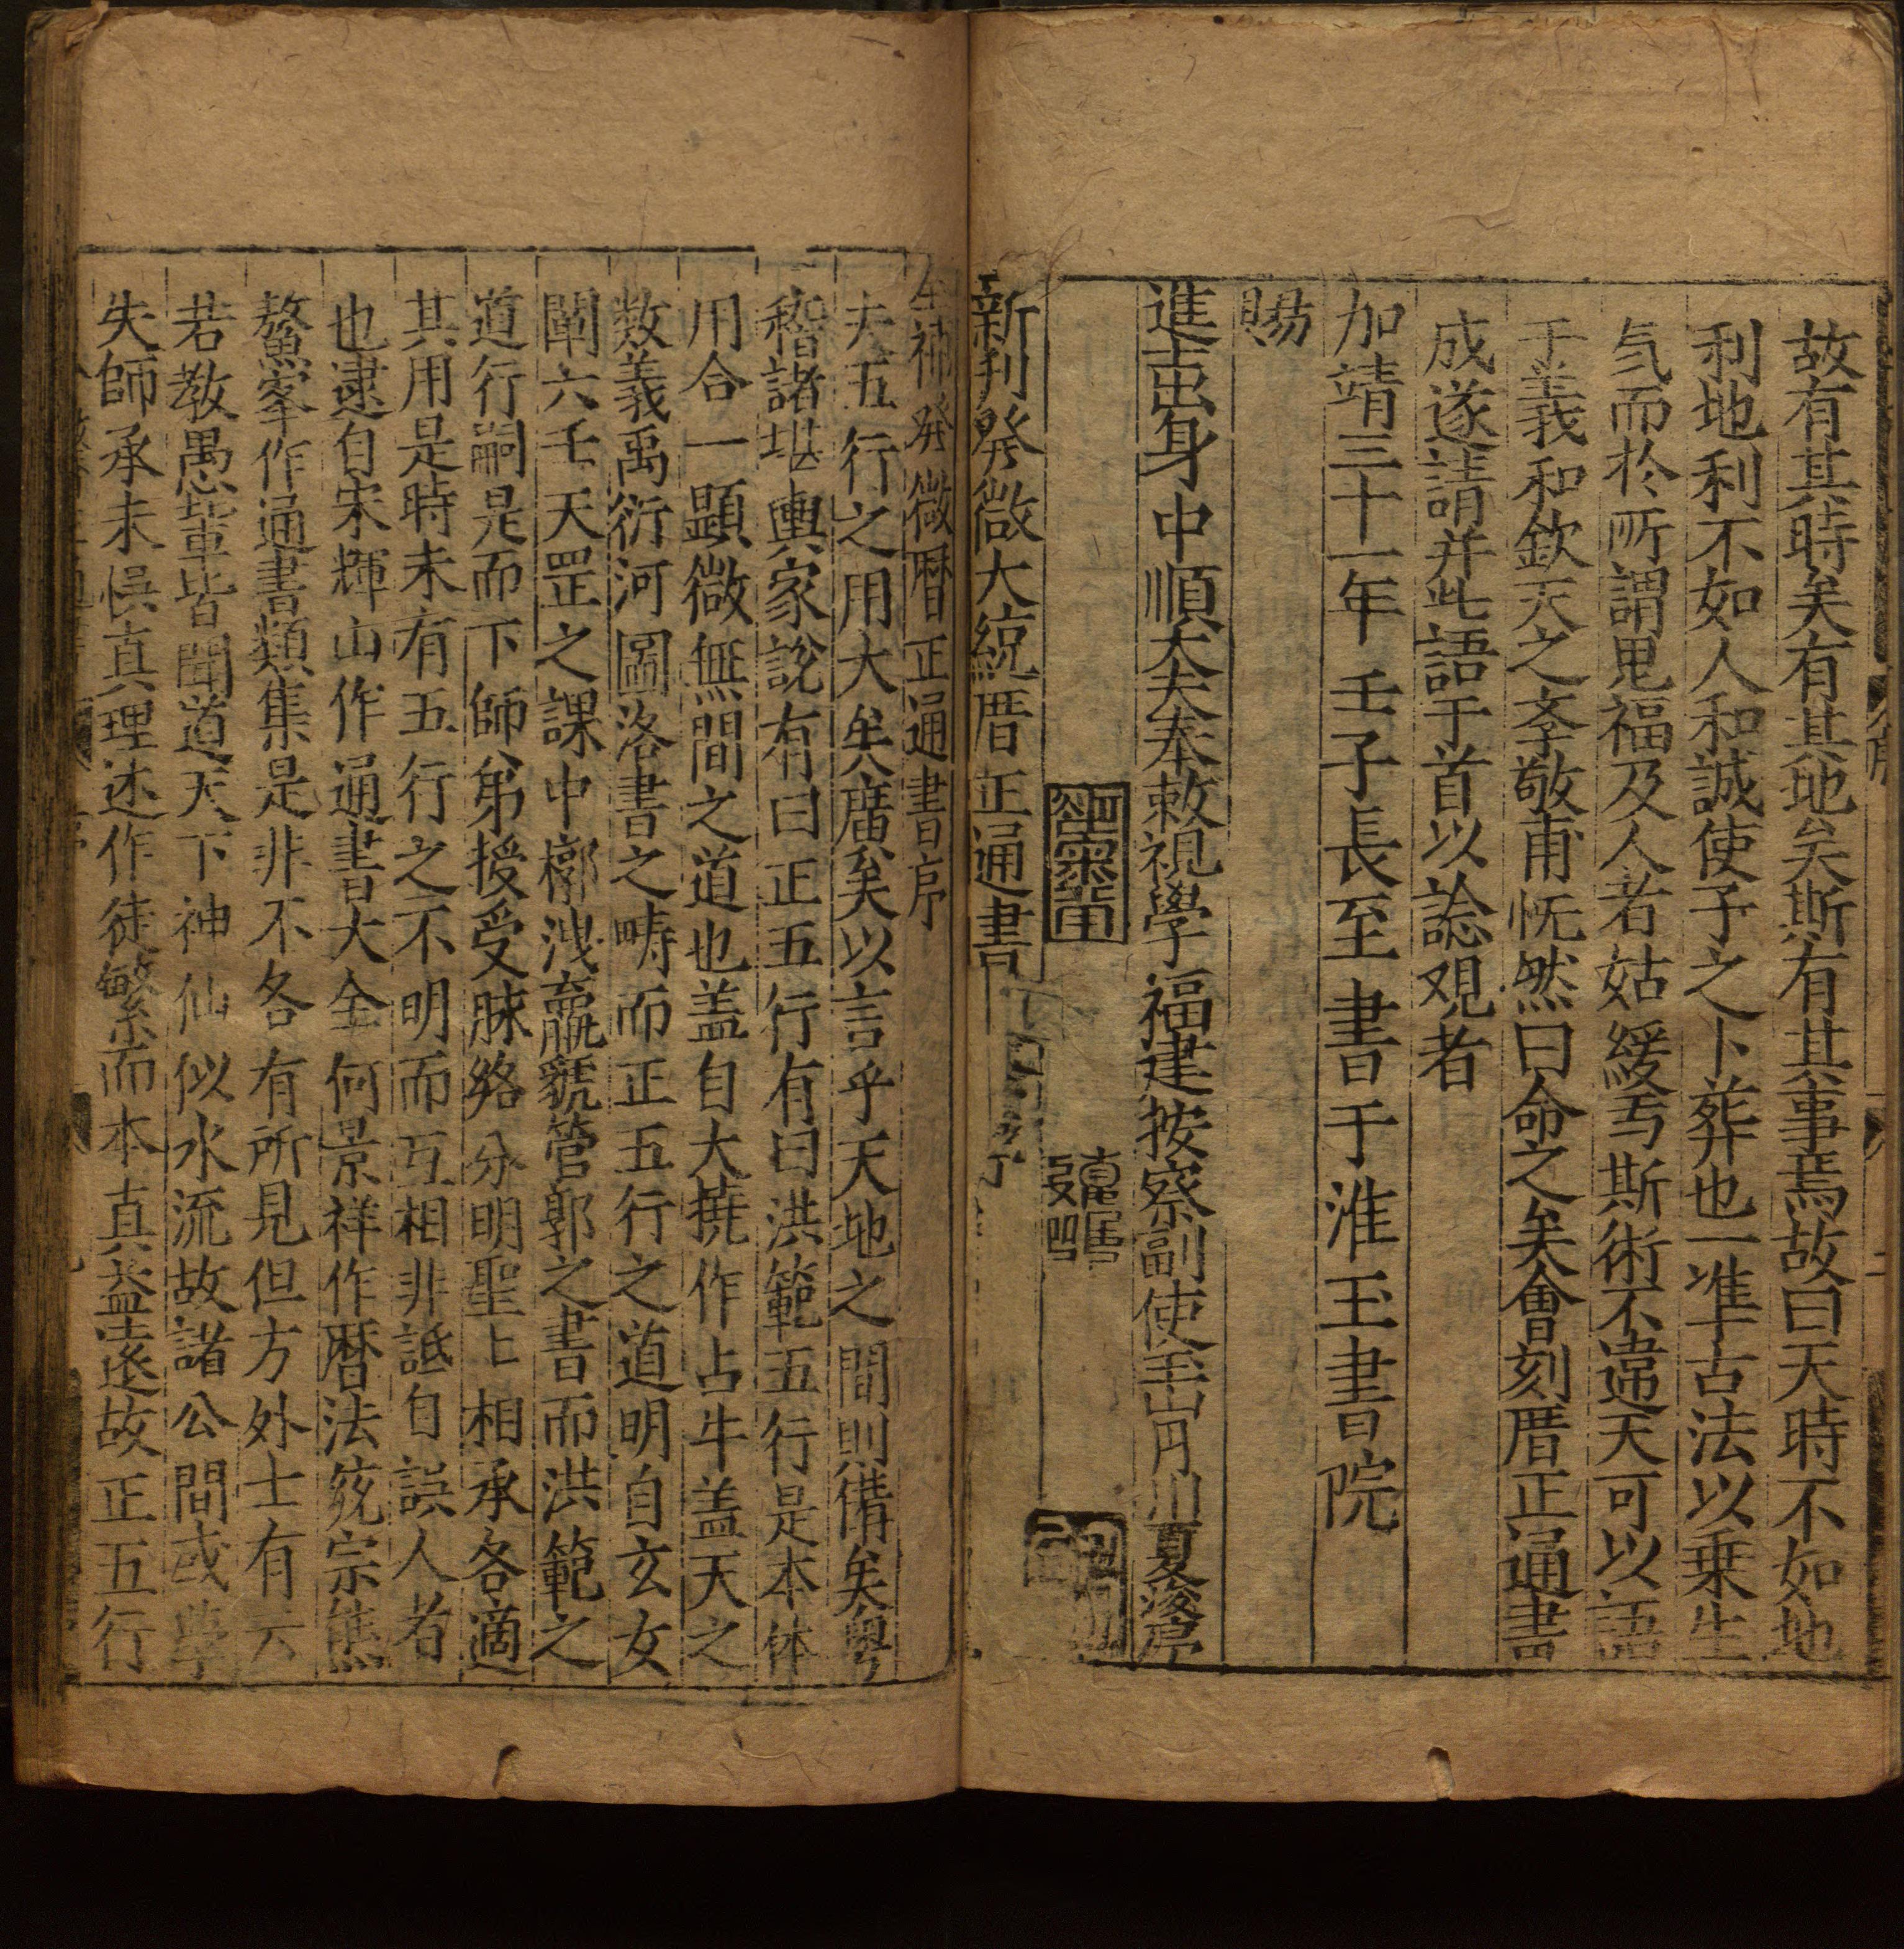 故有其時矣有其地矣斯有其事焉故曰天時不如地
利地利不如人和誠使子之卜葬也一准古法以乗生
氣而於所謂鬼福及人者姑緩焉斯術不違天可以語
于羲和欽天之奉敬甫忻然曰命之矣會刻厝正通書
成遂請并此語于首以諗观者
加靖三十一年壬子長至書于淮王書院
賜
進士出身中順大夫奉敕視學福建按察副使玉山月川夏浚序
新刋發微大統厝正通書
發微曆正通書序
夫五行之用大矣廣矣以言乎天地之間則俻矣粤
稽諸堪輿家說有曰正五行有曰洪範五行是本体
用合一顯微無間之道也盖自大撓作占斗盖天之
数義禹衍河圖洛書之疇而正五行之道明自玄女
闡六壬天罡之課中槨洩
管郭之書而洪範之
道行嗣是而下師弟授受脉絡分明聖上相承各適
其用是時未有五行之不明而互相非詆自誤人者
也逮自宋輝山作通書大全何景祥作曆法筊宗熊
鰲峯作通書類集是非不各有所見但方外士有云
若教愚輩皆聞道天下神仙似水流故諸公間或學
失師承未悞真理述作徒繁而本真益遠故正五行